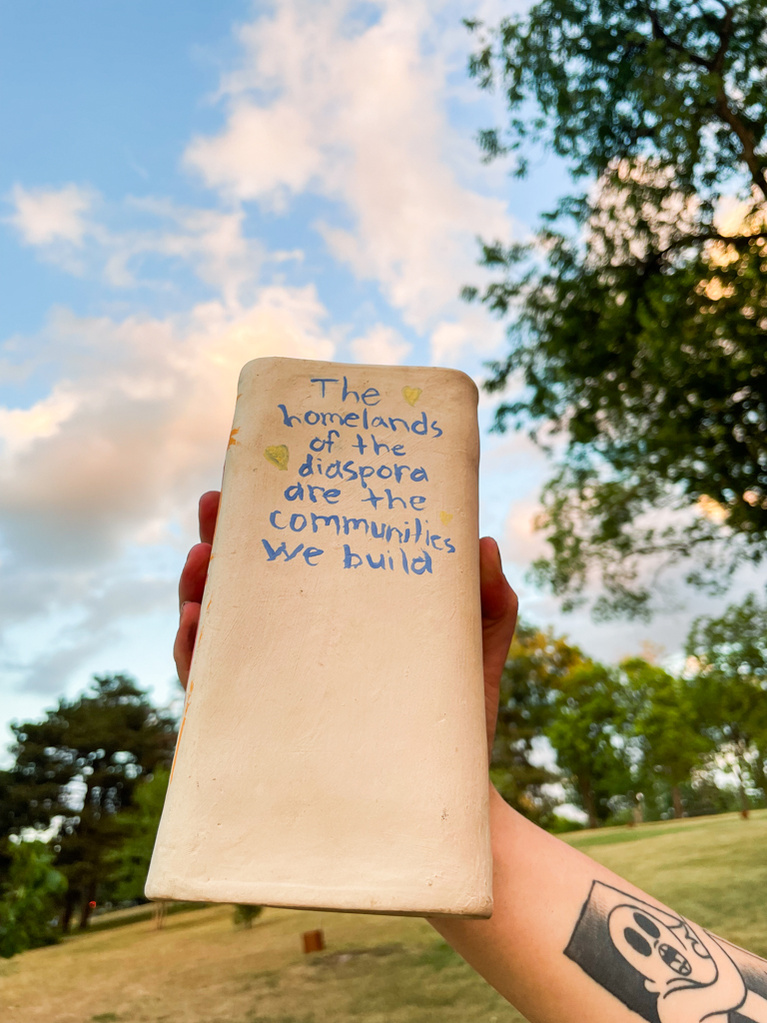 The
homelands
of the
diaspora
are the
communities
we build